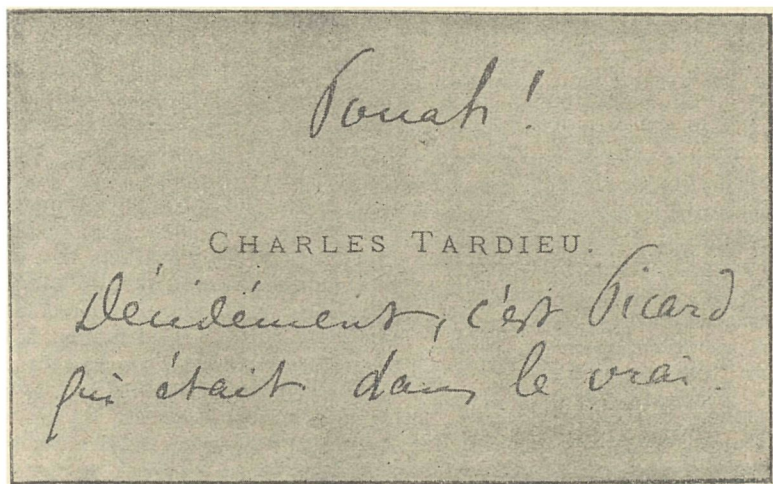 Pouah !
CHARLES TARDIEU.
Décidément, c'est Picard
qui était dans le vrai.